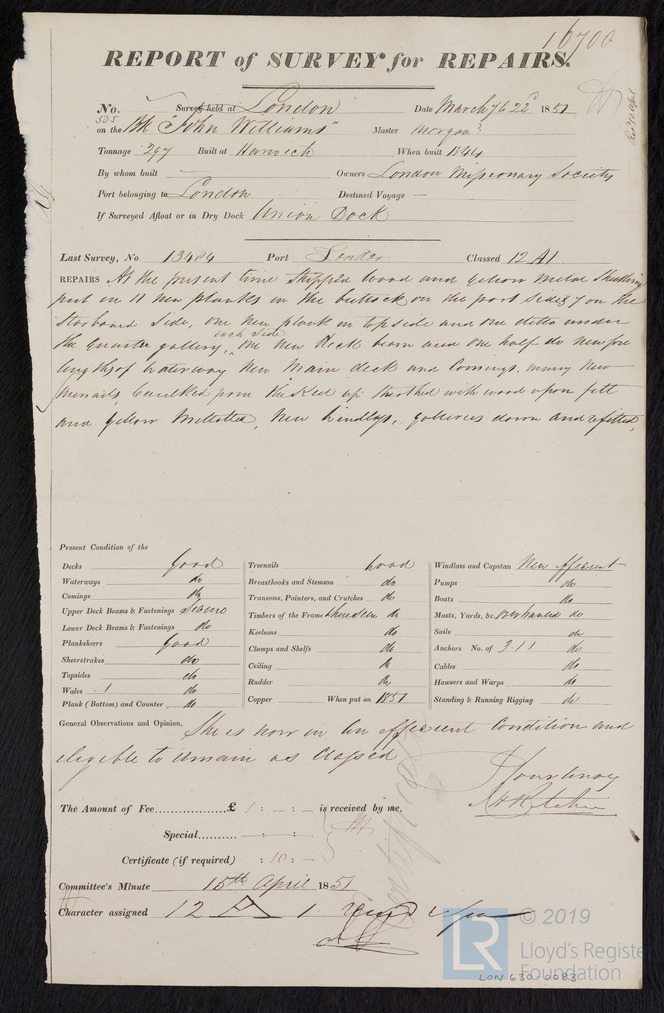 16700
REPORT of SURVEY for REPAIRS.
No. Survey held at London Date March 7 & 22d 1851
505
on the Bk "John Williams" Master Morgan
Tonnage 297 Built at Harwich When built 1844
By whom built Owners London Missionary Society
Port belonging to London Destined Voyage —
If Surveyed Afloat or in Dry Dock Union Dock
Last Survey, No 13484 Port London Classed 12 A1
REPAIRS At the present time stripped wood and yellow metal sheathing
put in 11 new planks in the buttock on the port side & 7 on the
starboard side, one new plank in topside and one ditto under
each side
the quarter gallery, one new Deck beam and one half do new fore
lengths of waterway New Main deck and Comings, many new
treenails, Caulked from the Keel up sheathed with wood upon felt
and yellow Metalled, New Windlass, galleries down and refitted,
Present Condition of the
Decks Good
Waterways do
Comings do
Upper Deck Beams & Fastenings
Lower Deck Beams & Fastenings do
Planksheers Good
Sheerstrakes do
Topsides do
Wales do
Plank (Bottom) and Counter do
Treenails Good
Breasthooks and Stemson do
Transoms, Pointers, and Crutches do
Timbers of the Frame do
Keelsons do
Clamps and Shelfs do
Ceiling do
Rudder do
Copper When put on 1851
Windlass and Capstan New efficient
Pumps do
Boats do
Masts, Yards, &c. overhauled do
Sails do
Anchors No. of 3.1.1 do
Cables do
Hawsers and Warps do
Standing & Running Rigging do
General Observations and Opinion, She is now in an efficient Condition and
eligible to remain as Classed
The Amount of Fee £ 1 : - : - is received by me,
Special
Certificate (if required) : 10 : -
Certificate
Committee's Minute 15th April 1851
Character assigned 12 A 1
© 2019
LR
Lloyd's Register
Foundation
LON 630-0083